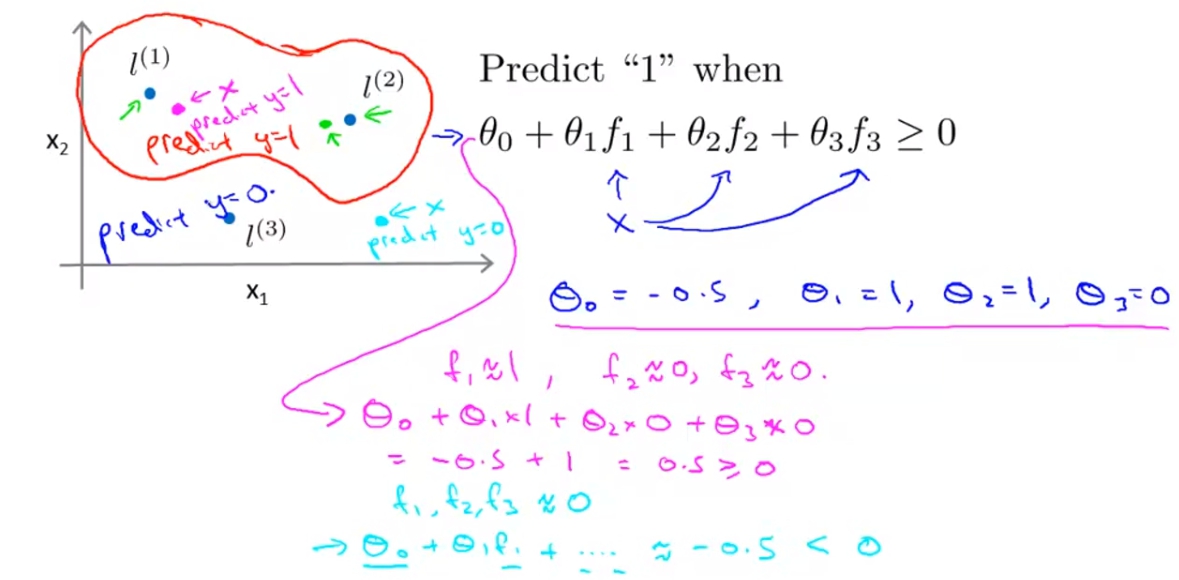 l^(1)
← x
predict y=1
l^(2)
predict y=1
x₂
predict y=0.
l^(3)
← x
predict y=0
x₁
Predict “1” when
θ₀ + θ₁f₁ + θ₂f₂ + θ₃f₃ ≥ 0
x
θ₀ = -0.5, θ₁ = 1, θ₂ = 1, θ₃ = 0
f₁ ≈ 1, f₂ ≈ 0, f₃ ≈ 0.
→ θ₀ + θ₁ × 1 + θ₂ × 0 + θ₃ × 0
= -0.5 + 1 = 0.5 ≥ 0
f₁, f₂, f₃ ≈ 0
→ θ₀ + θ₁f₁ + .... ≈ -0.5 < 0